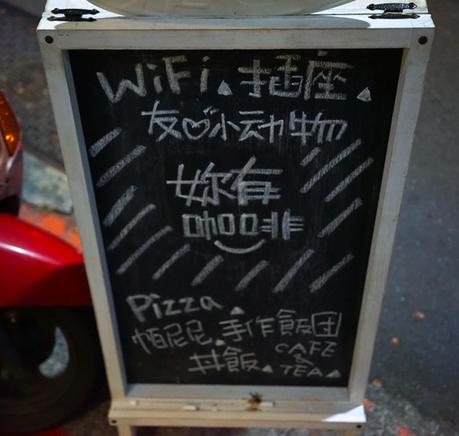 WiFi▲插座▲
友♡小动物
妳有
咖啡
Pizza▲
帕尼尼▲手作飯团
丼飯▲
CAFE
&
TEA▲